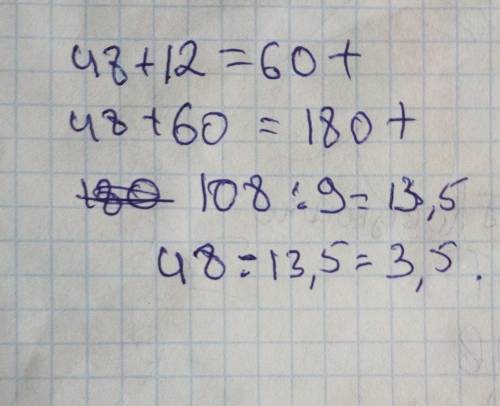 48+12=60+
48+60=180+
180 108:9=13,5
48:13,5=3,5.